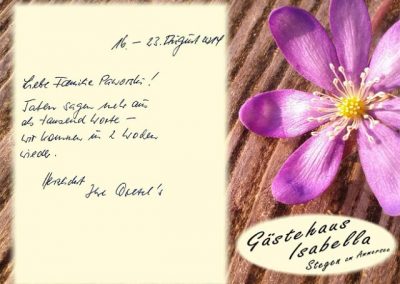 16. – 23. August 2014
Liebe Familie
Taten sagen mehr aus
als tausend Worte –
wir kommen in 2 Wochen
wieder.
Herzlichst
Gästehaus
Isabella
Stegen am Ammersee